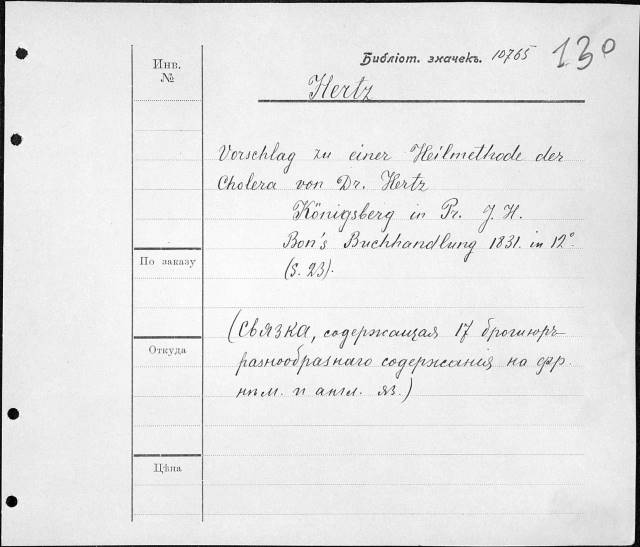 Инв.
№
Библіот. значекъ. 10765
130
Hertz
Vorschlag zu einer Heilmethode der
Cholera von Dr. Hertz
Königsberg in Pr. J. H.
Bon's Buchhandlung 1831. in 12°
(S. 23).
По заказу
(Связка, содержащая 17 брошюръ
Откуда
разнообразнаго содержанія на фр.
нѣм. и англ. яз.)
Цѣна